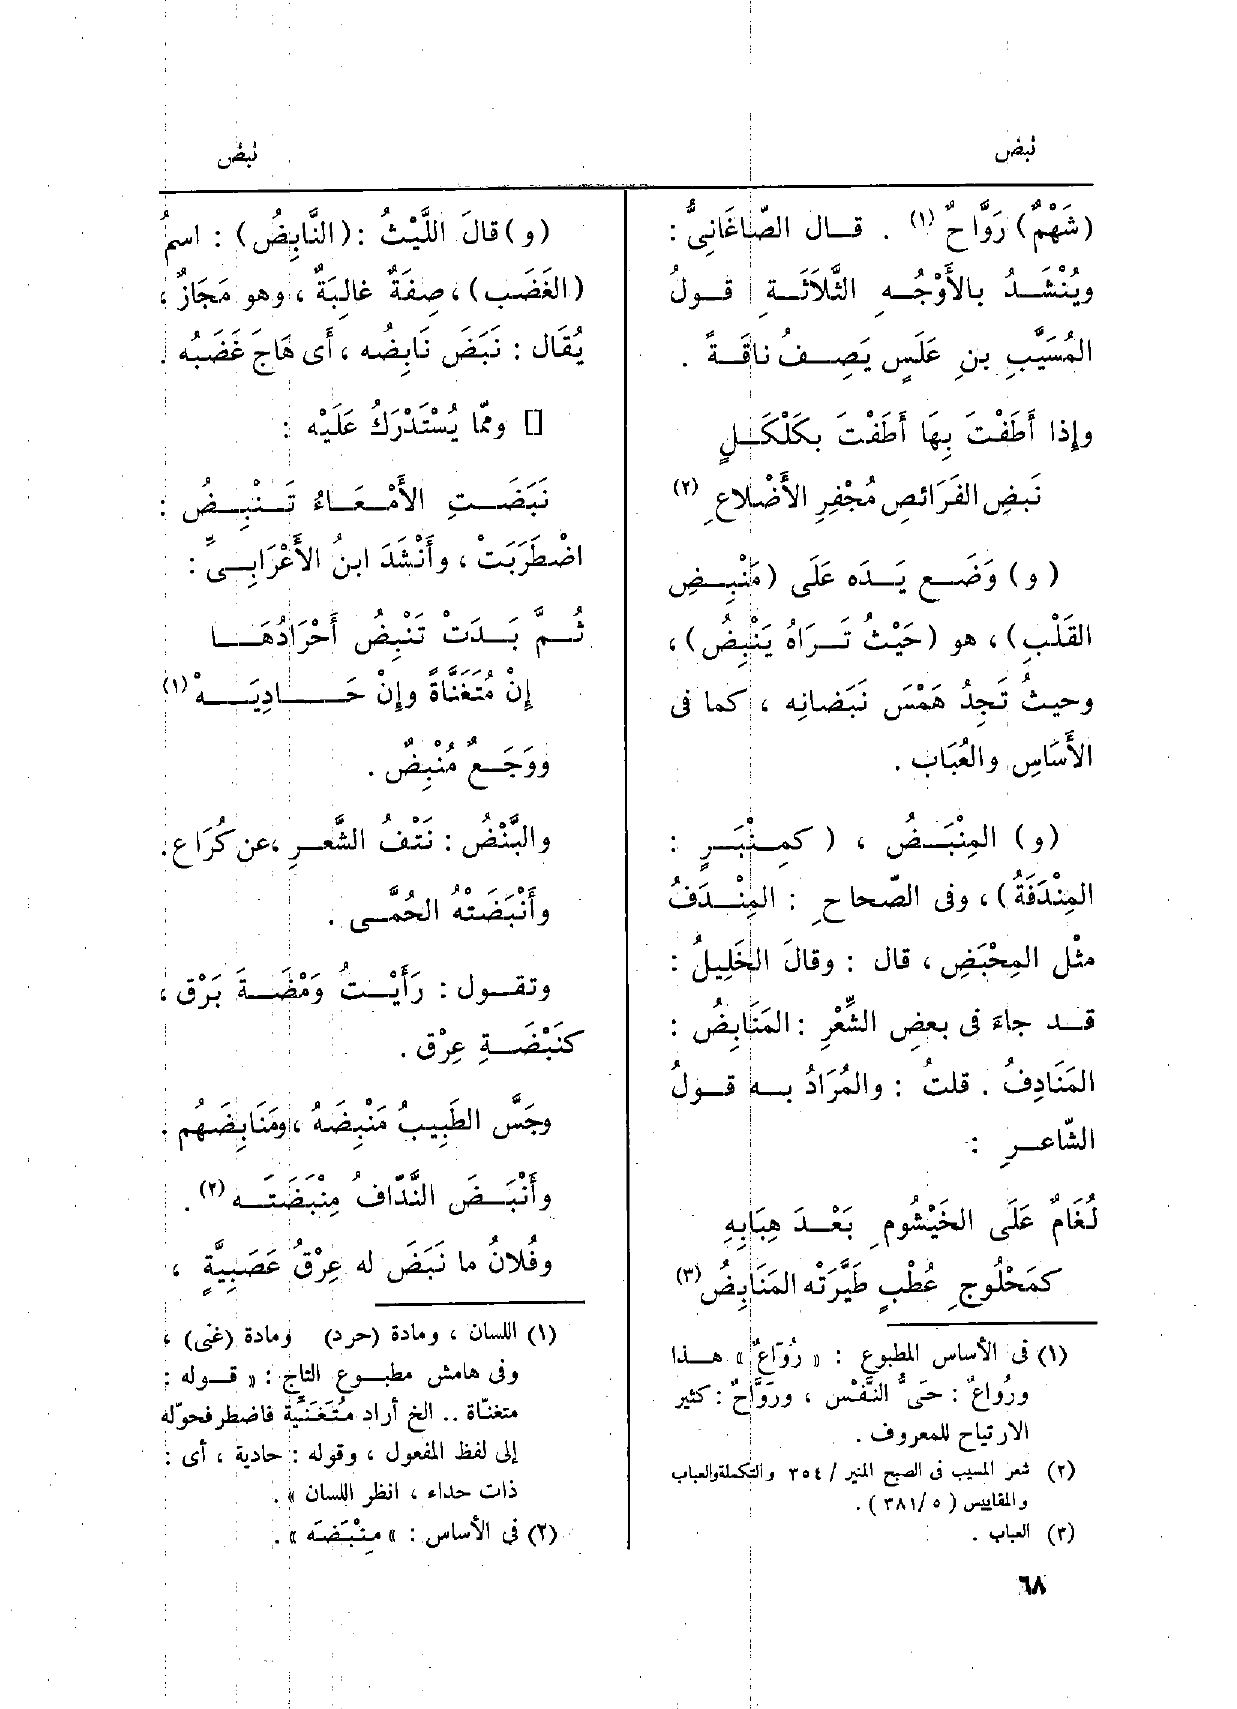 نبض
نبض
(شَهْمٌ) رَوَّاحٌ (١) . قال الصّاغَانِىُّ :
ويُنْشَدُ بالأَوْجُهِ الثَّلاَثَةِ قولُ
المُسَيَّبِ بنِ عَلَسٍ يَصِفُ ناقَةً .
وإذا أَطَفْتَ بِهَا أَطَفْتَ بِكَلْكَلٍ
نَبِضِ الفَرَائصِ مُجْفِرِ الأَضْلاعِ (٢)
(و) وَضَع يَدَه عَلَى (مَنْبِضِ
القَلْبِ) ، هو (حَيْثُ تَرَاهُ يَنْبِضُ) ،
وحيثُ تَجِدُ هَمْسَ نَبَضانِه ، كما فى
الأَسَاسِ والعُبَاب .
(و) المِنْبَضُ ، (كمِنْبَرٍ :
المِنْدَفَةُ) ، وفى الصّحاحِ : المِنْدَفُ
مثْل المِحْبَضِ ، قال : وقالَ الخَلِيلُ :
قد جاءَ فى بعضِ الشِّعْرِ : المَنَابِضُ :
المَنَادِفُ . قلتُ : والمُرَادُ به قولُ
الشّاعرِ :
لُغَامٌ عَلَى الخَيْشُومِ بَعْدَ هِبَابِهِ
كمَحْلُوجِ عُطْبٍ طَيَّرَتْه المَنَابِضُ (٣)
(١) فى الأساس المطبوع : « رُوَاعٌ » هذا
ورُواعٌ : حَىُّ النَّفْس ، ورَوَّاحٌ : كثير
الارتياح للمعروف .
(٢) شعر المسيب فى الصبح المنير / ٣٥٤ والتكملة والعباب
والمقاييس (٥/ ٣٨١) .
(٣) العباب .
٦٨
(و) قالَ اللَّيْثُ : (النَّابِضُ) : اسمُ
(الغَضَبِ) ، صِفَةٌ غالِبَةٌ ، وهو مَجَازٌ ،
يُقَال : نَبَضَ نَابِضُه ، أَى هَاجَ غَضَبُه .
[] وممّا يُسْتَدْرَكُ عَلَيْه :
نَبَضَتِ الأَمْعَاءُ تَنْبِضُ :
اضْطَرَبَتْ ، وأَنْشَدَ ابنُ الأَعْرَابِىِّ :
ثُمَّ بَدَتْ تَنْبِضُ أَحْرَادُهَا
إِنْ مُتَغَنَّاةً وإِنْ حَادِيَهْ (١)
ووَجَعٌ مُنْبِضٌ .
والنَّبْضُ : نَتْفُ الشَّعرِ ، عن كُرَاع .
وأَنْبَضَتْهُ الحُمَّى .
وتقول : رَأَيْتُ وَمْضَةَ بَرْق ،
كنَبْضَةِ عِرْق .
وجَسَّ الطَبِيبُ مَنْبِضَهُ ، ومَنَابِضَهُم .
وأَنْبَضَ النَّدّافُ مِنْبَضَتَه (٢) .
وفُلانٌ ما نَبَضَ له عِرْقُ عَصَبِيَّةٍ ،
(١) اللسان ، ومادة (حرد) ومادة (غنى) ،
وفى هامش مطبوع التاج : « قوله :
متغنّاة .. الخ أراد مُتَغَنِّيَة فاضطر فحوّله
إلى لفظ المفعول ، وقوله : حادية ، أى :
ذات حداء ، انظر اللسان » .
(٢) فى الأساس : « مِنْبَضَه » .